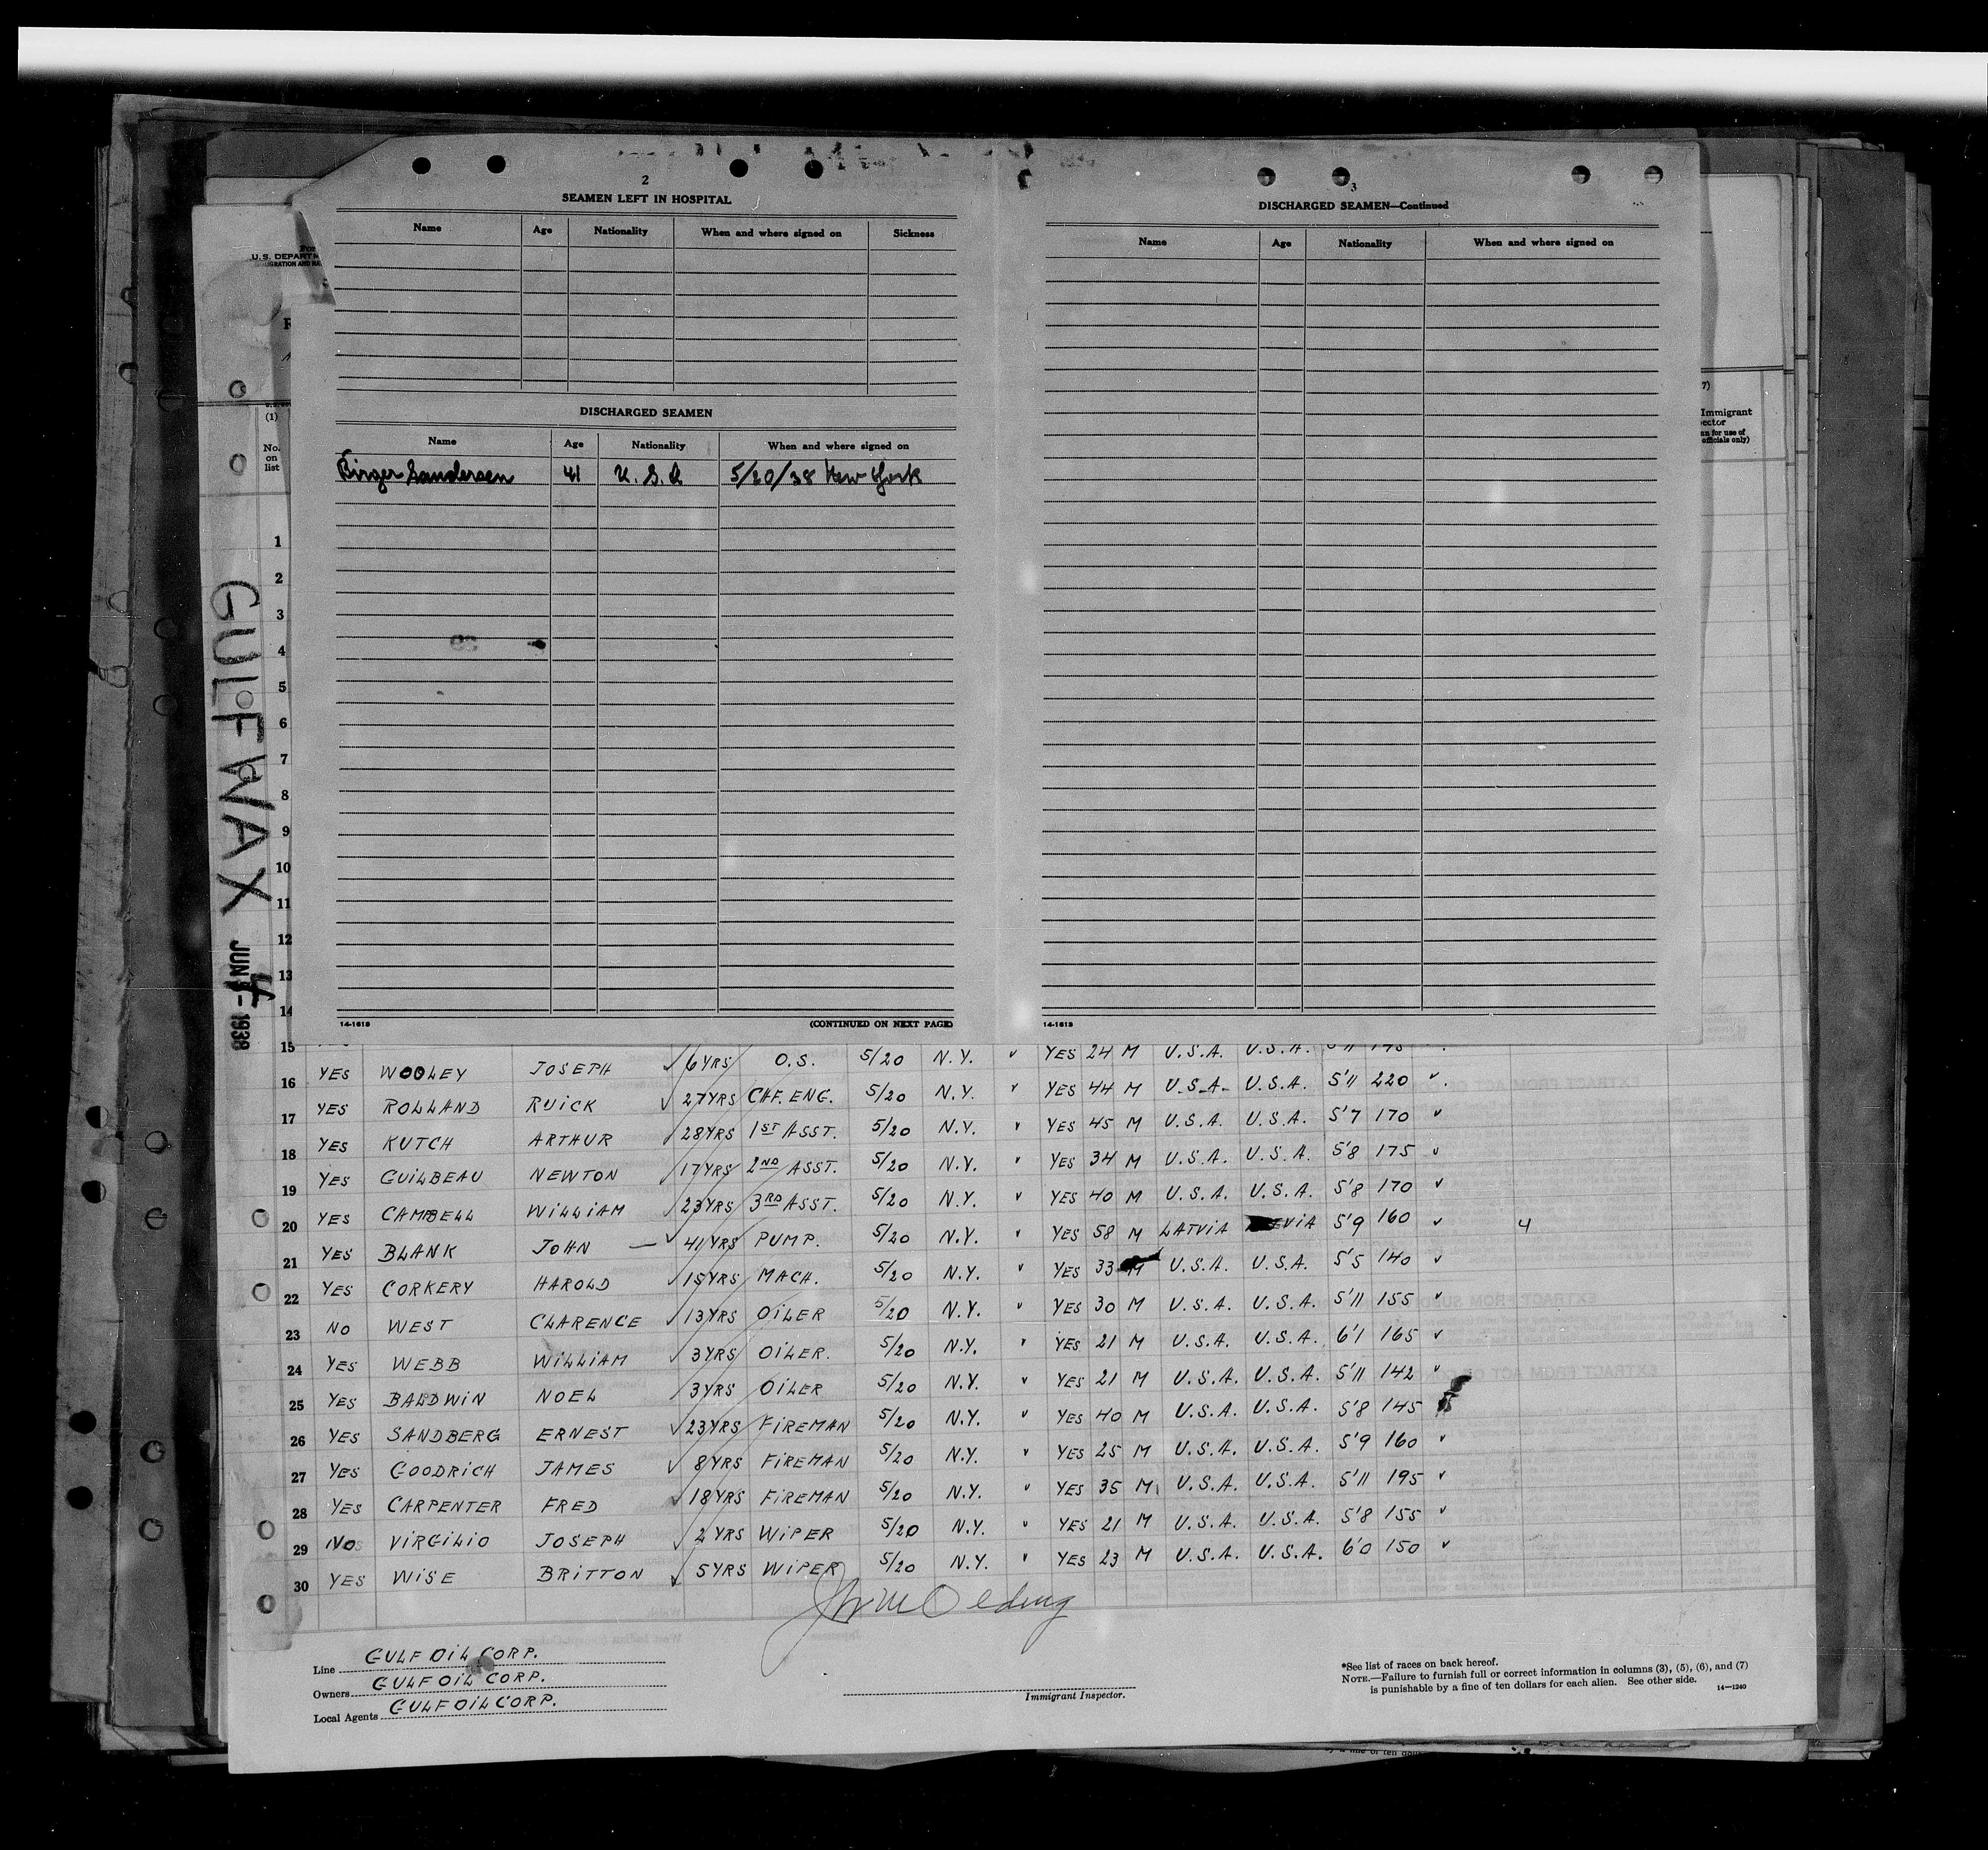 2
SEAMEN LEFT IN HOSPITAL
Name Age Nationality When and where signed on Sickness
DISCHARGED SEAMEN
Name Age Nationality When and where signed on
Birger Sandersen 41 U.S.A 5/20/38 New York
14-1613 (CONTINUED ON NEXT PAGE)
3
DISCHARGED SEAMEN—Continued
Name Age Nationality When and where signed on
14-1613
U.S. DEPARTM
(1)
No.
on
list
7)
Immigrant
ector
an for use of
officials only)
GULFWAX JUN 4 - 1938
1
2
3
4
5
6
7
8
9
10
11
12
13
14
15 YES WOOLEY JOSEPH ✓ 6YRS O.S. 5/20 N.Y. ✓ YES 24 M U.S.A. U.S.A.
16 YES ROLLAND RUICK ✓ 27YRS CHF. ENG. 5/20 N.Y. ✓ YES 44 M U.S.A. U.S.A. 5'11 220 ✓
17 YES KUTCH ARTHUR ✓ 28YRS 1ST ASST. 5/20 N.Y. ✓ YES 45 M U.S.A. U.S.A. 5'7 170 ✓
18 YES GUILBEAU NEWTON ✓ 17YRS 2ND ASST. 5/20 N.Y. ✓ YES 34 M U.S.A. U.S.A. 5'8 175 ✓
19 YES CAMPBELL WILLIAM ✓ 23YRS 3RD ASST. 5/20 N.Y. ✓ YES 40 M U.S.A. U.S.A. 5'8 170 ✓
20 YES BLANK JOHN — 41YRS PUMP. 5/20 N.Y. ✓ YES 58 M LATVIA 5'9 160 ✓ 4
21 YES CORKERY HAROLD ✓ 15YRS MACH. 5/20 N.Y. ✓ YES 33 M U.S.A. U.S.A. 5'5 140 ✓
22 NO WEST CLARENCE ✓ 13YRS OILER 5/20 N.Y. ✓ YES 30 M U.S.A. U.S.A. 5'11 155 ✓
23 YES WEBB WILLIAM ✓ 3YRS OILER. 5/20 N.Y. ✓ YES 21 M U.S.A. U.S.A. 6'1 165 ✓
24 YES BALDWIN NOEL ✓ 3YRS OILER 5/20 N.Y. ✓ YES 21 M U.S.A. U.S.A. 5'11 142 ✓
25 YES SANDBERG ERNEST ✓ 23YRS FIREMAN 5/20 N.Y. ✓ YES 40 M U.S.A. U.S.A. 5'8 145
26 YES GOODRICH JAMES ✓ 8YRS FIREMAN 5/20 N.Y. ✓ YES 25 M U.S.A. U.S.A. 5'9 160 ✓
27 YES CARPENTER FRED ✓ 18YRS FIREMAN 5/20 N.Y. ✓ YES 35 M U.S.A. U.S.A. 5'11 195 ✓
28 NO VIRGILIO JOSEPH ✓ 2YRS WIPER 5/20 N.Y. ✓ YES 21 M U.S.A. U.S.A. 5'8 155 ✓
29 YES WISE BRITTON ✓ 5YRS WIPER 5/20 N.Y. ✓ YES 23 M U.S.A. U.S.A. 6'0 150 ✓
30
Line GULF OIL CORP.
Owners GULF OIL CORP.
Local Agents GULF OIL CORP.
Immigrant Inspector.
*See list of races on back hereof.
NOTE.—Failure to furnish full or correct information in columns (3), (5), (6), and (7)
is punishable by a fine of ten dollars for each alien. See other side. 14—1240